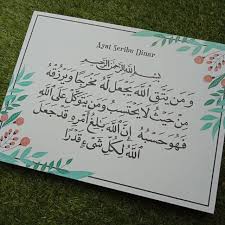 Ayat Seribu Dinar
بِسْمِ اللهِ الرَّحْمٰنِ الرَّحِيْمِ
وَمَن يَتَّقِ اللَّهَ يَجْعَل لَّهُ مَخْرَجًا وَيَرْزُقْهُ
مِنْ حَيْثُ لَا يَحْتَسِبُ وَمَن يَتَوَكَّلْ عَلَى اللَّهِ
فَهُوَ حَسْبُهُ إِنَّ اللَّهَ بَالِغُ أَمْرِهِ قَدْ جَعَلَ
اللَّهُ لِكُلِّ شَيْءٍ قَدْرًا